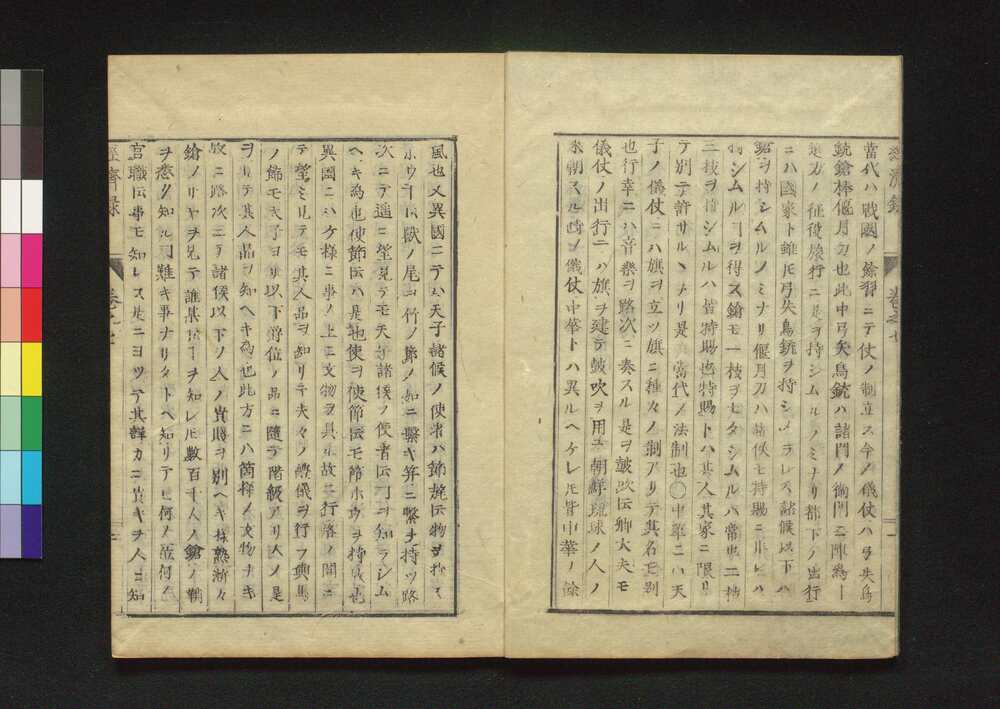 當代ハ戰國ノ餘習ニテ仗ノ制立ス今ノ儀仗ハ弓矢鳥
銃鎗棒偃月刀也此中弓矢鳥銃ハ諸門ノ衛門ニ陣シ
遠方ノ征役旅行ニ是ヲ持シムルノミナリ都下ノ出行
ニハ國家ト雖𪜈弓矢鳥銃ヲ持シメラレス諸候以下ハ
鎗ヲ持シムルノミナリ偃月刀ハ諸候モ特賜ニ非レハ
持シムルヿヲ得ス鎗モ一枝ヲモタシムルハ常也二枝
三枝ヲ持シムルハ皆特賜也特賜トハ其人其家ニ限リ
テ別テ許サルヽナリ是當代ノ法制也〇中華ニハ天
子ノ儀仗ニハ旗ヲ立ツ旗ニ種々ノ制アリテ其名モ別
也行幸ニハ音樂ヲ路次ニ奏スル是ヲ皷吹ト云卿大夫モ
儀仗ノ出行ニハ旗ヲ建テ皷吹ヲ用ユ朝鮮琉球ノ人ノ
來朝スル時ノ儀仗中華トハ異ルヘケレ𪜈皆中華ノ餘
風也又異國ニテハ天子諸候ノ使者ハ節旄ト云物ヲ持ス
次ニテ遥ニ望見テモ天子諸候ノ使者ト云ヿヲ知ラシム
ヘキ為也使節ト云ハ是也使ヲ使節ト云モ節ヲ持故也
異國ニハケ様ニ事ノ上ニ文物ヲ具ス故ニ行路ノ間ニ
テ望ミ見テモ其人品ヲ知リテ夫々ノ禮儀ヲ行フ輿馬
ノ飾モ天子ヨリ以下爵位ノ品ニ隨テ階級アリ人ノ是
ヲ見テ其人品ヲ知ヘキ為也此方ニハ箇様ノ文物ナキ
故ニ路次ニテ諸候以下ノ人ノ貴賤ヲ別ヘキ様無漸々
鎗ノサヤヲ見テ誰某ナルヿヲ知レ𪜈數百千人ノ鎗ノ鞘
ヲ悉ク知ルヿ難キ事ナリタトヘ知リテモ何ノ
官職ト云事モ知レス是ニヨツテ其貴キヲ人ニ知
經濟録
卷之七